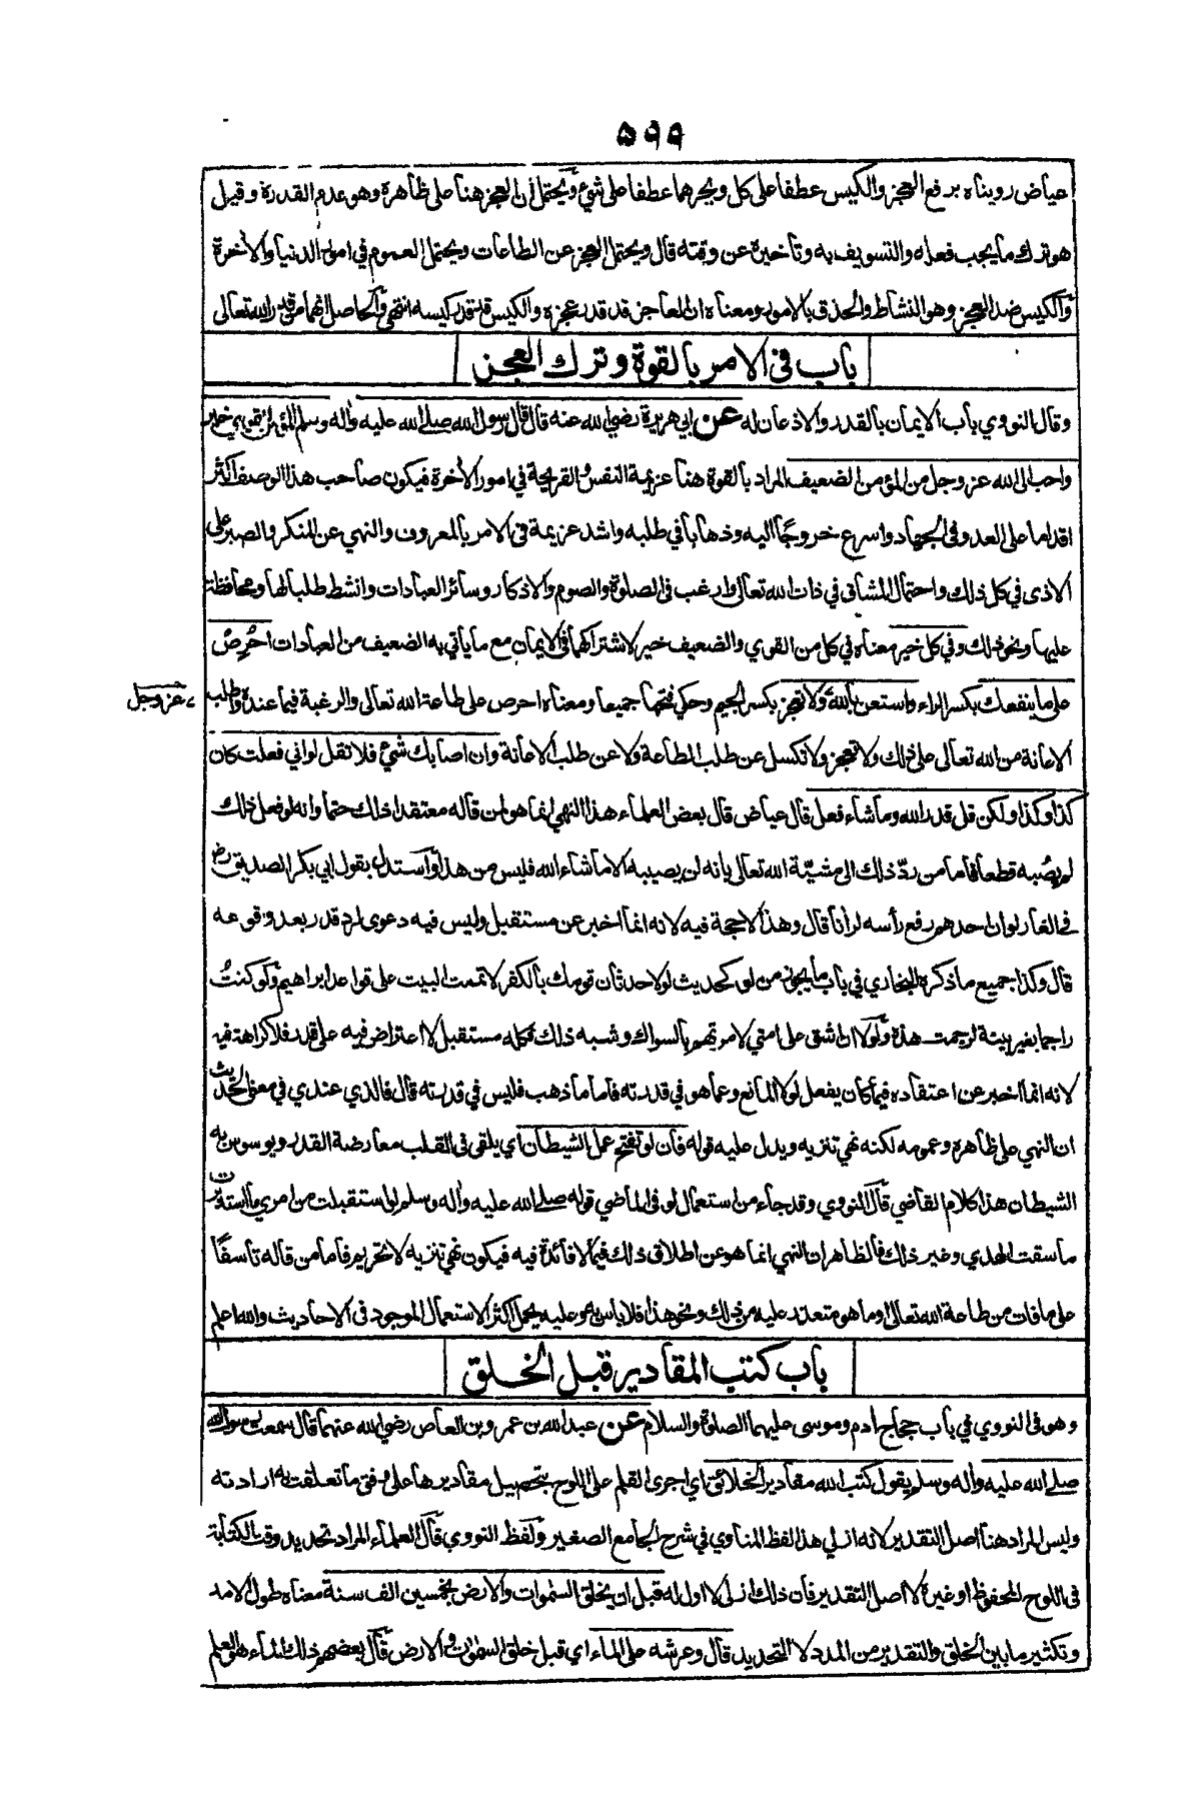 ٥٩٩
عياض رويناه برفع العجز والكيس عطفا على كل وبجرهما عطفا على شئ ويحتمل أن العجز هنا على ظاهره وهو عدم القدرة وقيل
هو ترك ما يجب فعله والتسويف به وتأخيره عن وقته قال ويحتمل العجز عن الطاعات ويحتمل العموم في امور الدنيا والأخرة
والكيس ضد العجز وهو النشاط والحذق بالامور ومعناه ان العاجز قد قدر عجزه والكيس قد قدر كيسه انتهى والحاصل انهما من قدر الله تعالى
باب في الامر بالقوة وترك العجز
وقال النووي باب الايمان بالقدر والاذعان له عن ابي هريرة رضي الله عنه قال قال رسول الله صلى الله عليه واله وسلم المؤمن القوي خير
واحب الى الله عز وجل من المؤمن الضعيف المراد بالقوة هنا عزيمة النفس والقريحة في امور الأخرة فيكون صاحب هذا الوصف اكثر
اقداما على العدو في الجهاد واسرع خروجًا اليه وذهابا في طلبه واشد عزيمة في الامر بالمعروف والنهي عن المنكر والصبر على
الاذى في كل ذلك واحتمال المشاق في ذات الله تعالى وارغب في الصلوة والصوم والاذكار وسائر العبادات وانشط طلبا لها ومحافظة
عليها ونحو ذلك وفي كل خير معناه في كل من القوي والضعيف خير لاشتراكهما في الايمان مع ما يأتي به الضعيف من العبادات احْرِصْ
على ما ينفعك بكسر الراء واستعن بالله ولا تعجز بكسر الجيم وحكي فتحها جميعا ومعناه احرص على طاعة الله تعالى والرغبة فيما عنده واطلب
عز وجل
الاعانة من الله تعالى على ذلك ولا تعجز ولا تكسل عن طلب الطاعة ولا عن طلب الاعانة وان اصابك شئ فلا تقل لو اني فعلت كان
كذا وكذا ولكن قل قدر الله وما شاء فعل قال عياض قال بعض العلماء هذا النهي انما هو لمن قاله معتقدا ذلك حتما وانه لو فعل ذلك
لم يصبه قطعا فاما من ردّ ذلك الى مشيّة الله تعالى بانه لن يصيبه الا ما شاء الله فليس من هذا واستدل بقول ابي بكر الصديق رض
في الغار لو ان احدهم رفع رأسه لرأنا قال وهذا لا حجة فيه لانه انما اخبر عن مستقبل وليس فيه دعوى لرد قدر بعد وقوعه
قال وكذا جميع ما ذكره البخاري في باب ما يجوز من لو كحديث لولا حدثان قومك بالكفر لاتممت البيت على قواعد ابراهيم ولو كنتُ
راجما بغير بينة لرجمت هذه ولولا ان اشق على امتي لامرتهم بالسواك وشبه ذلك فكله مستقبل لا اعتراض فيه على قدر فلا كراهة فيه
لانه انما اخبر عن اعتقاده فيما كان يفعل لولا المانع وعما هو في قدرته فاما ما ذهب فليس في قدرته قال فالذي عندي في معنى الحديث
ان النهي على ظاهره وعمومه لكنه نهي تنزيه ويدل عليه قوله فان لو تفتح عمل الشيطان اي يلقى في القلب معارضة القدر ويوسوس به
الشيطان هذا كلام القاضي قال النووي وقد جاء من استعمال لو في الماضي قوله صلى الله عليه واله وسلم لو استقبلت من امري ما استدبرت
ما سقت الهدي وغير ذلك فالظاهر ان النهي انما هو عن اطلاق ذلك فيما لا فائدة فيه فيكون نهي تنزيه لا تحريم فاما من قاله تأسفًا
على ما فات من طاعة الله تعالى او ما هو متعذر عليه من ذلك ونحو هذا فلا بأس به وعليه يحمل اكثر الاستعمال الموجود في الاحاديث والله اعلم
باب كتب المقادير قبل الخلق
وهو في النووي في باب حجاج ادم وموسى عليهما الصلوة والسلام عن عبد الله بن عمرو بن العاص رضي الله عنهما قال سمعت رسول الله
صلى الله عليه واله وسلم يقول كتب الله مقادير الخلائق اي اجرى القلم على اللوح بتحصيل مقاديرها على وفق ما تعلقت به ارادته
وليس المراد هنا اصل التقدير لانه ازلي هذا لفظ المناوي في شرح الجامع الصغير ولفظ النووي قال العلماء المراد تحديد وقت الكتابة
في اللوح المحفوظ او غيره لا اصل التقدير فان ذلك ازلي لا اول له قبل ان يخلق السموات والارض بخمسين الف سنة معناه طول الامد
وتكثير ما بين الخلق والتقدير من المدد لا التحديد قال وعرشه على الماء اي قبل خلق السموات والارض قال بعضهم ذلك الماء هو العلم